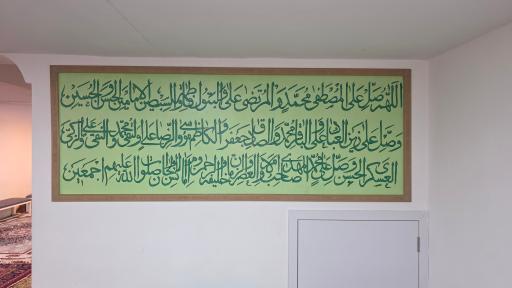 اللهم صل على المصطفى محمد و المرتضى علي و البتول فاطمة و السبطين الامامين الحسن و الحسين
و صل على زين العباد علي و الباقر محمد و الصادق جعفر و الكاظم موسى و الرضا علي و التقي محمد و النقي علي و الزكي
العسكري الحسن و صل على المهدي صاحب العصر و الزمان و خليفة الرحمن صلوات الله عليهم اجمعين